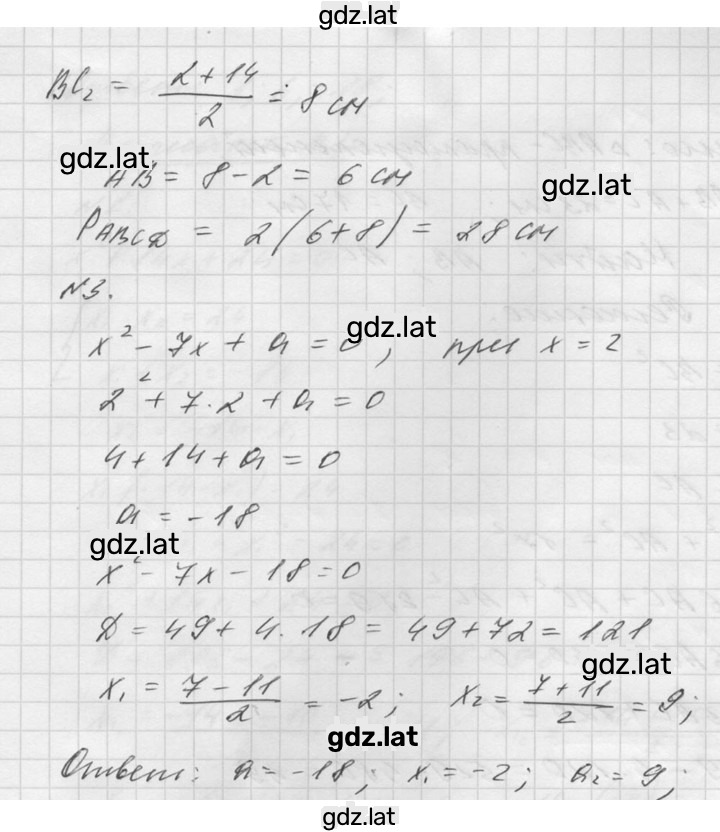 gdz.lat
BC₂ = (2+14)/2 = 8 см
gdz.lat
AB = 8 - 2 = 6 см
gdz.lat
P_ABCD = 2(6+8) = 28 см
№3.
gdz.lat
x² - 7x + a = 0, при x = 2
2² + 7·2 + a = 0
4 + 14 + a = 0
a = -18
gdz.lat
x² - 7x - 18 = 0
D = 49 + 4·18 = 49 + 72 = 121
gdz.lat
x₁ = (7-11)/2 = -2; x₂ = (7+11)/2 = 9;
gdz.lat
Ответ: a = -18; x₁ = -2; a₂ = 9;
gdz.lat